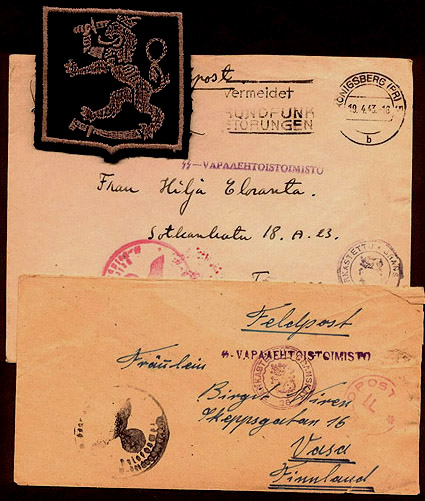 post
Vermeldet
RUNDFUNK
STÖRUNGEN
KÖNIGSBERG (PR)
19.4.43
b
ᛋᛋ-VAPAAEHTOISTOIMISTO
Frau Hilja Eloranta.
Sotkankatu 18. A. 23.
Feldpost
ᛋᛋ-VAPAAEHTOISTOIMISTO
Fräulein
Birgit Viren
Skeppsgatan 16
Vasa
Finnland